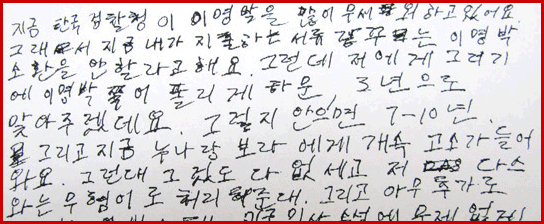 지금 한국 검찰청이 이명박을 많이 우세 외 하고 있어요.
그래서 지금 내가 지 하는 서류 는 이명박
소환을 안 할라고 해요. 그런데 저에게 그러기
에 이명박 쪽이 풀리게 하문 3년으로
맞아주겠데요. 그렇지 안으면 7-10년.
그리고 지금 누나랑 보라에게 개속 고소가 들어
와요. 그런대 그것도 다 없세고 저 다스
와는 무혐어로 처리 해준대. 그리고 아우 추가로